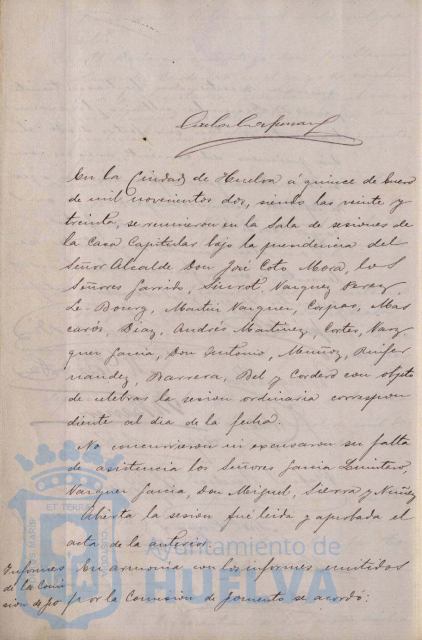 En la Ciudad de Huelva á quince de Enero
de mil novecientos dos, siendo las veinte y
treinta, se reunieron en la Sala de sesiones de
la Casa Capitular bajo la presidencia del
Señor Alcalde Don José Coto Mora, los
Señores Garrido, Siurot, Vazquez Perez,
Le-Bourg, Martin Vazquez, Corpas, Mas
carós, Diaz, Andrés Martinez, Cortes, Vaz
quez Garcia, Don Antonio, Muñoz, Ruifer
nandez, Barrera, Bel y Cordero con objeto
de celebrar la sesion ordinaria correspon
diente al dia de la fecha.
No concurrieron ni excusaron su falta
de asistencia los Señores Garcia Quintero,
Vazquez Garcia, Don Miguel, Sierra y Nuñez
Abierta la sesion fué leida y aprobada el
acta de la anterior.
Informes
de la Comi
sion de fo
En armonia con los informes emitidos
por la Comision de Fomento se acordó:
Ayuntamiento de
HUELVA